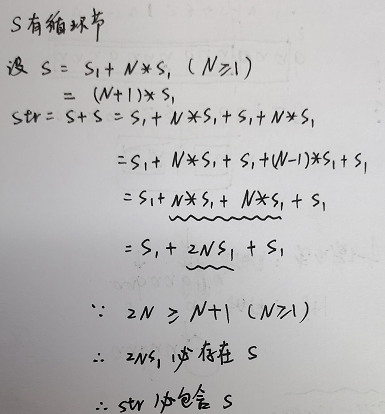 S有循环节
设 S = S₁ + N*S₁ (N≥1)
= (N+1)*S₁
str = S+S = S₁ + N*S₁ + S₁ + N*S₁
= S₁ + N*S₁ + S₁ + (N-1)*S₁ + S₁
= S₁ + N*S₁ + N*S₁ + S₁
= S₁ + 2NS₁ + S₁
∵ 2N ≥ N+1 (N≥1)
∴ 2NS₁ 必存在 S
∴ str 必包含 S